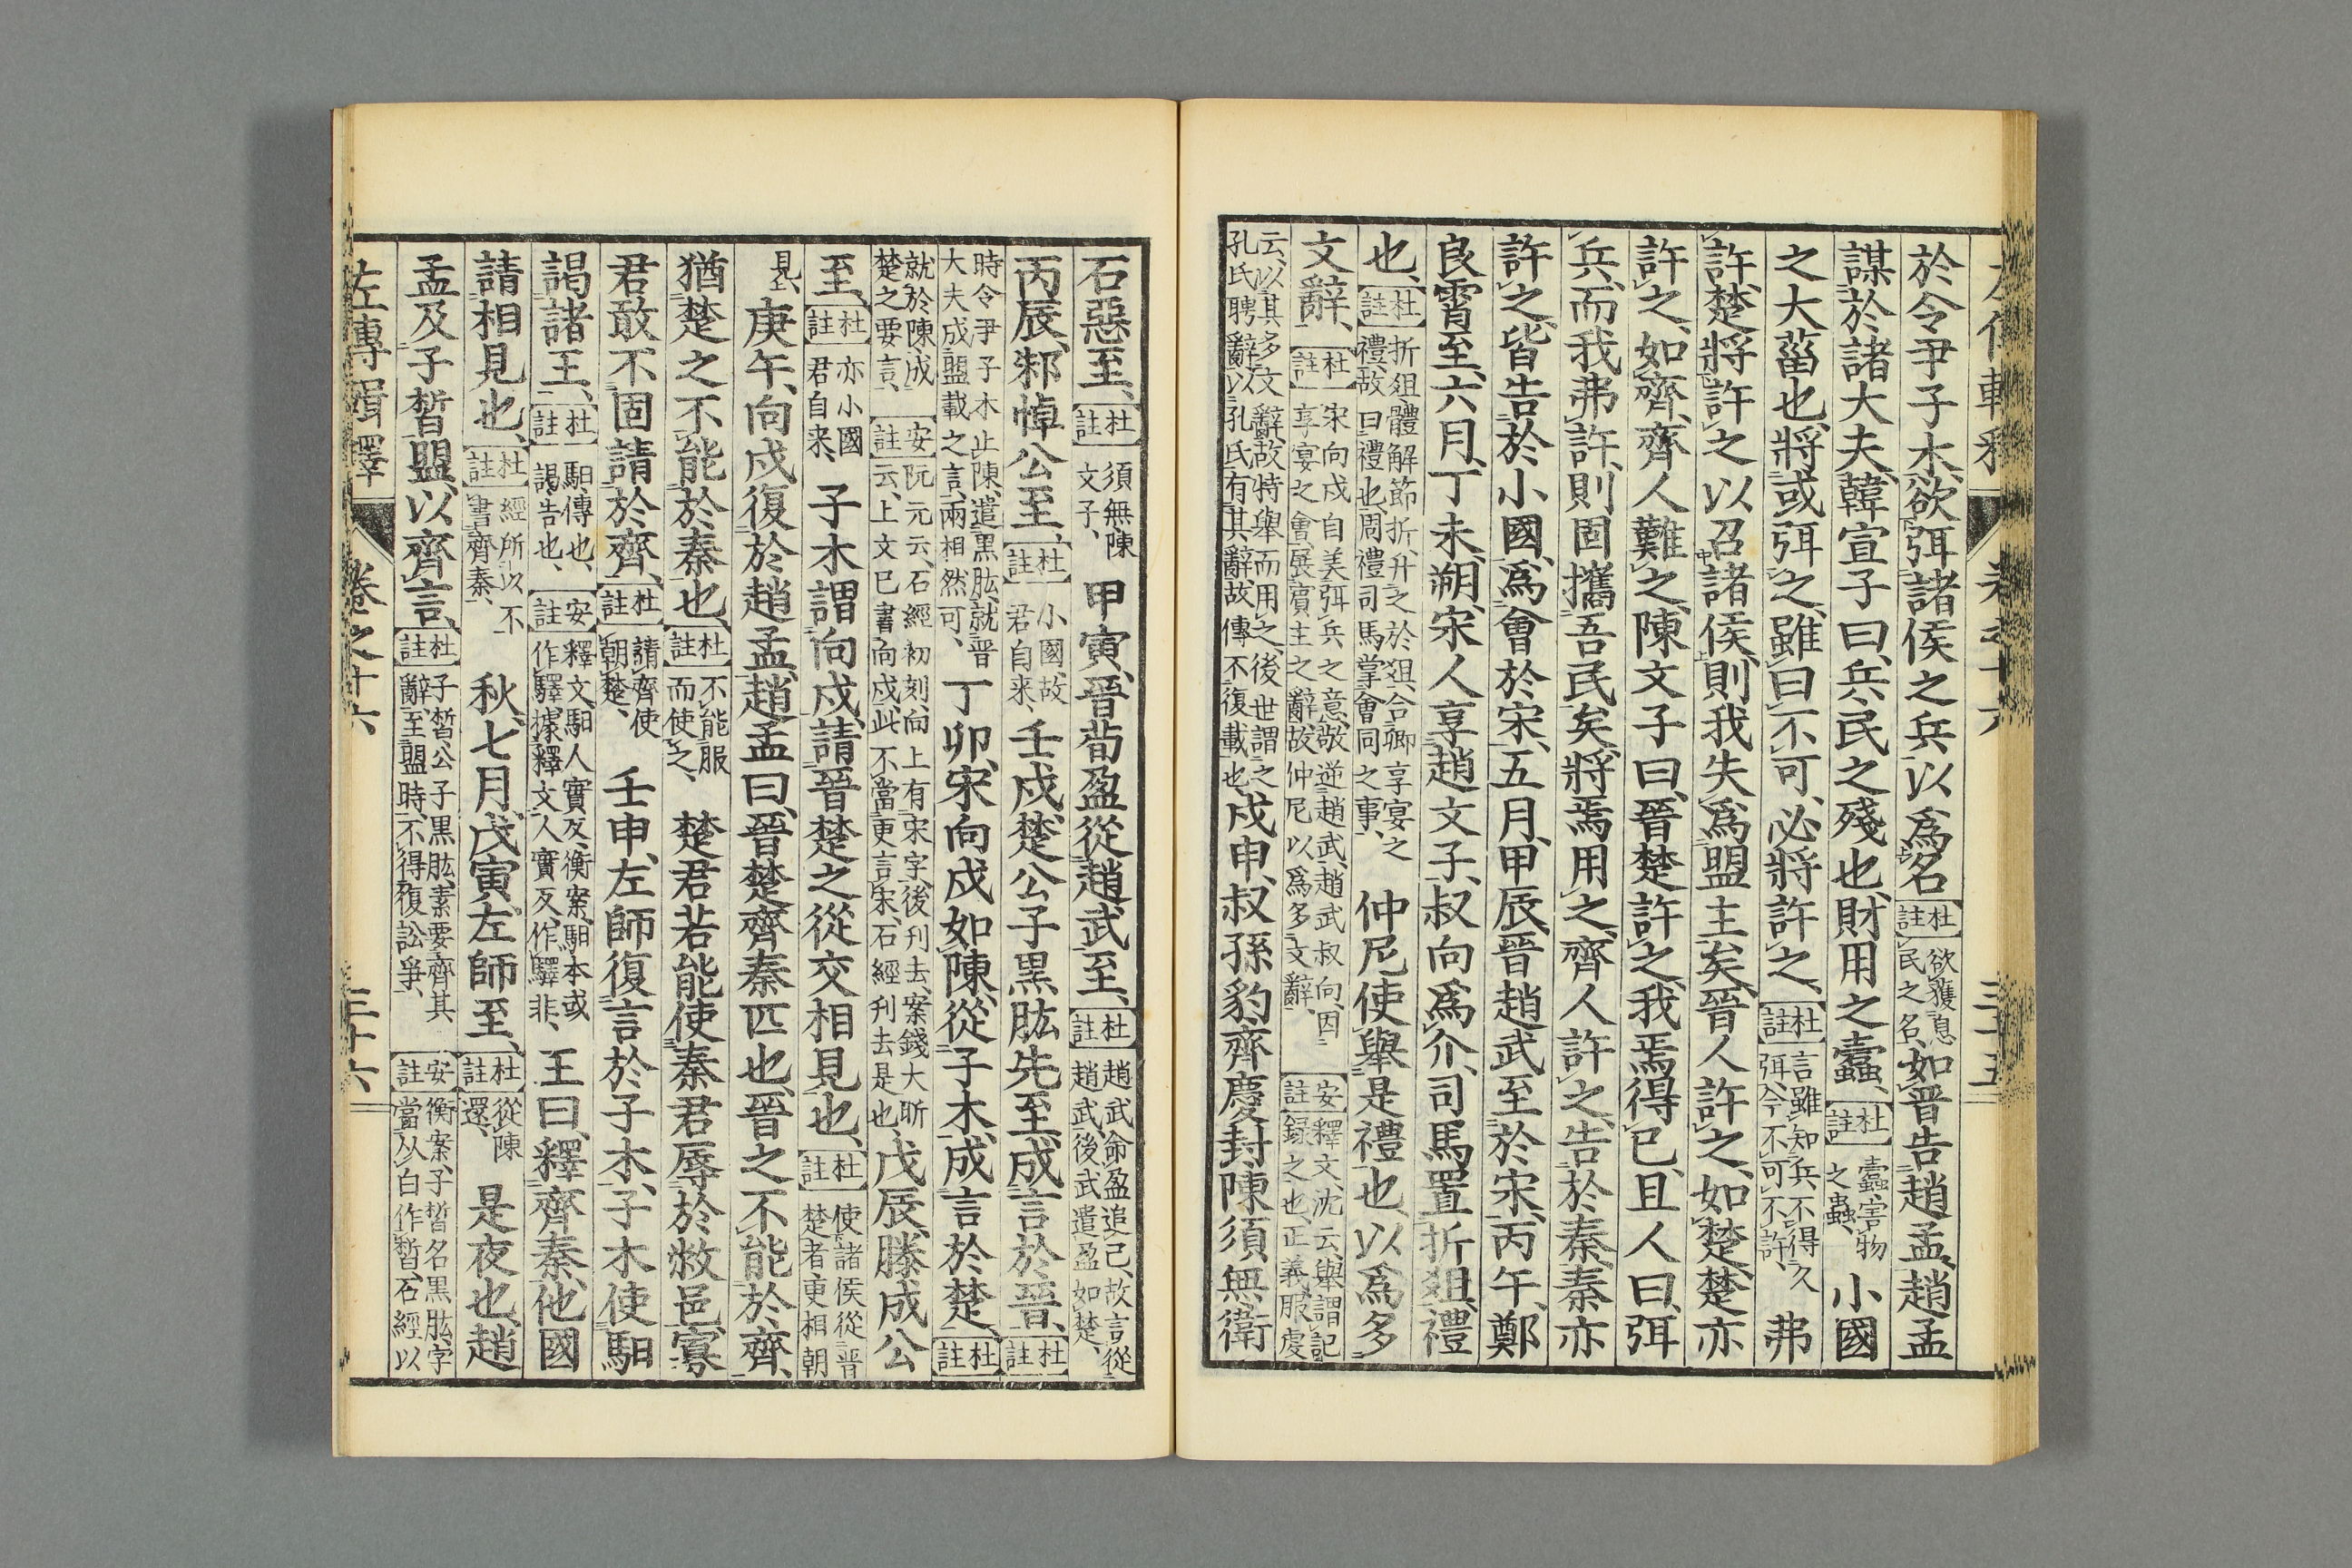 於令尹子木欲弭諸侯之兵以爲名【杜註】欲獲息民之名如晉告趙孟趙孟
謀於諸大夫韓宣子曰兵民之殘也財用之蠹【杜註】蠹害物之蟲小國
之大菑也將或弭之雖曰不可必將許之【杜註】言雖知兵不得久弭今不可不許弗
許楚將許之以召諸侯則我失爲盟主矣晉人許之如楚楚亦
許之如齊齊人難之陳文子曰晉楚許之我焉得已且人曰弭
兵而我弗許則固攜吾民矣將焉用之齊人許之告於秦秦亦
許之皆告於小國爲會於宋五月甲辰晉趙武至於宋丙午鄭
良霄至六月丁未朔宋人享趙文子叔向爲介司馬置折俎禮
也【杜註】折俎體解節折升之於俎合卿享宴之禮故曰禮也周禮司馬掌會同之事仲尼使舉是禮也以爲多
文辭【杜註】宋向戌自美弭兵之意敬逆趙武趙武叔向因享宴之會展賓主之辭故仲尼以爲多文辭【安註】釋文沈云舉謂記錄之也正義服虔
云以其多文辭故特舉而用之後世謂之孔氏聘辭以孔氏有其辭故傳不復載也戌申叔孫豹齊慶封陳須無衛
石惡至【杜註】須無陳文子甲寅晉荀盈從趙武至【杜註】趙武命盈追己故言從趙武後武遣盈如楚
丙辰邾悼公至【杜註】小國故君自来壬戌楚公子黒肱先至成言於晉【杜註】
時令尹子木止陳遣黒肱就晉大夫成盟載之言兩相然可丁卯宋向戌如陳從子木成言於楚【杜註】
就於陳成楚之要言【安註】阮元云石經初刻向上有宋字後刊去案錢大昕云上文已書向戌此不當更言宋石經刊去是也戊辰滕成公
至【杜註】亦小國君自来子木謂向戌請晉楚之從交相見也【杜註】使諸侯從晉楚者更相朝
見庚午向戌復於趙孟趙孟曰晉楚齊秦匹也晉之不能於齊
猶楚之不能於秦也【杜註】不能服而使之楚君若能使秦君辱於敝邑寡
君敢不固請於齊【杜註】請齊使朝楚壬申左師復言於子木子木使馹
謁諸王【杜註】馹傳也謁告也【安註】釋文馹人實反衡案馹本或作驛據釋文人實反作驛非王曰釋齊秦他國
請相見也【杜註】經所以不書齊秦秋七月戊寅左師至【杜註】從陳還是夜也趙
孟及子晳盟以齊言【杜註】子晳公子黒肱素要齊其辭至盟時不得復訟爭【安註】衡案子晳名黒肱字當从白作晳石經以
左傳輯釋 卷之十六 三十六